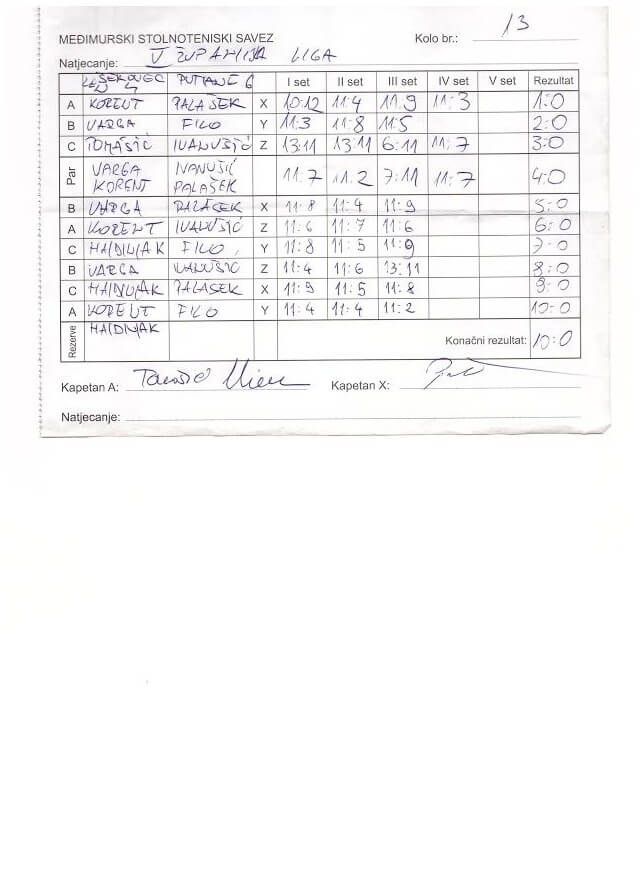 MEĐIMURSKI STOLNOTENISKI SAVEZ Kolo br.: 13
Natjecanje: V ŽUPANIJSKA LIGA
I set II set III set IV set V set Rezultat
A KORENT PALAŠEK X 10:12 11:4 11:9 11:3 1:0
B VARGA FILO Y 11:3 11:8 11:5 2:0
C TOMAŠIĆ IVANUŠIĆ Z 13:11 13:11 6:11 11:7 3:0
Par VARGA IVANUŠIĆ 11:7 11:2 7:11 11:7 4:0
KORENT PALAŠEK
B VARGA PALAŠEK X 11:8 11:4 11:9 5:0
A KORENT IVANUŠIĆ Z 11:6 11:7 11:6 6:0
C HAJDINJAK FILO Y 11:8 11:5 11:9 7:0
B VARGA IVANUŠIĆ Z 11:4 11:6 13:11 8:0
C HAJDINJAK PALAŠEK X 11:9 11:5 11:8 9:0
A KORENT FILO Y 11:4 11:4 11:2 10:0
Rezerve HAJDINJAK Konačni rezultat: 10:0
Kapetan A: Tomašić Kapetan X:
Natjecanje: